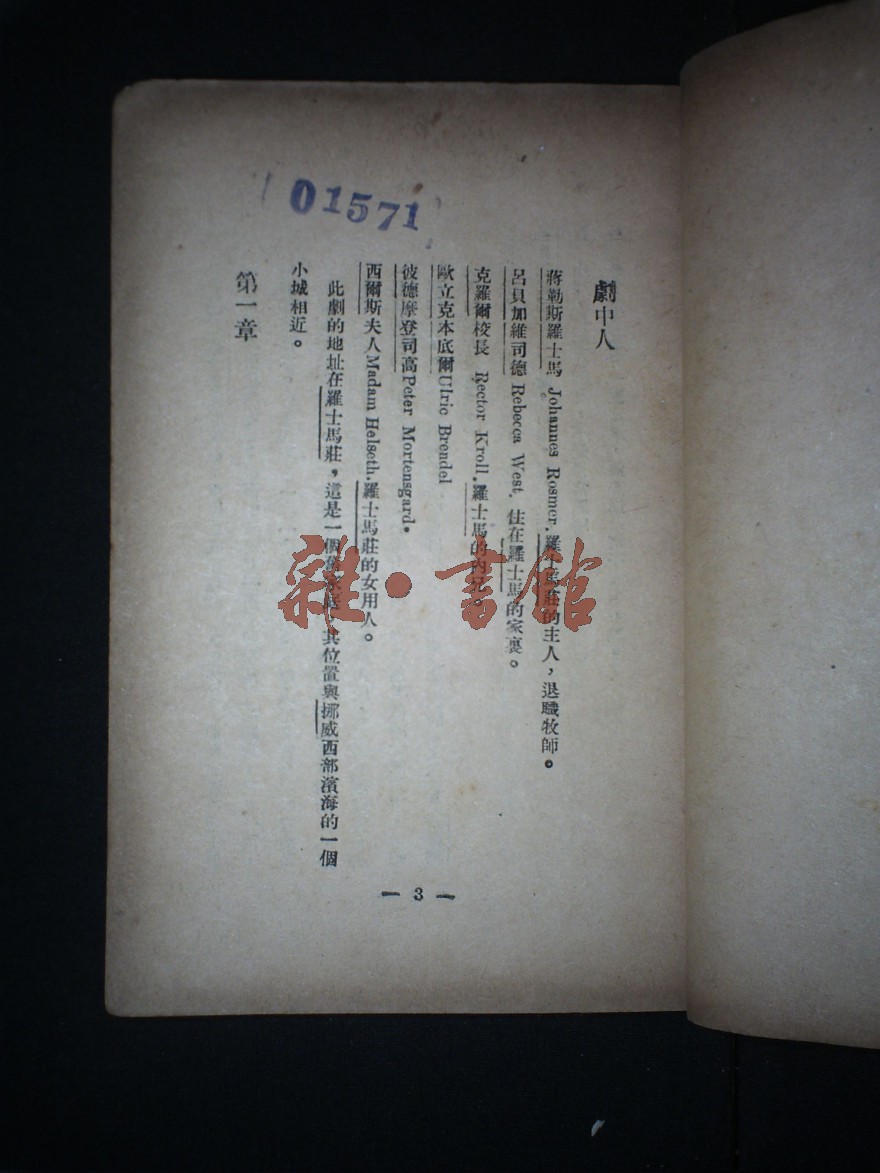 01571
劇中人
蔣勒斯羅士馬 Johannes Rosmer. 羅士馬莊的主人，退職牧師。
呂貝加維司德 Rebecca West. 住在羅士馬的家裏。
克羅爾校長 Rector Kroll. 羅士馬的內兄。
歐立克本底爾 Ulric Brendel
彼德摩登司高 Peter Mortensgard.
西爾斯夫人 Madam Helseth. 羅士馬莊的女用人。
此劇的地址在羅士馬莊，這是一個舊家庭，其位置與挪威西部濱海的一個
小城相近。
第一章
— 3 —
雜·書館